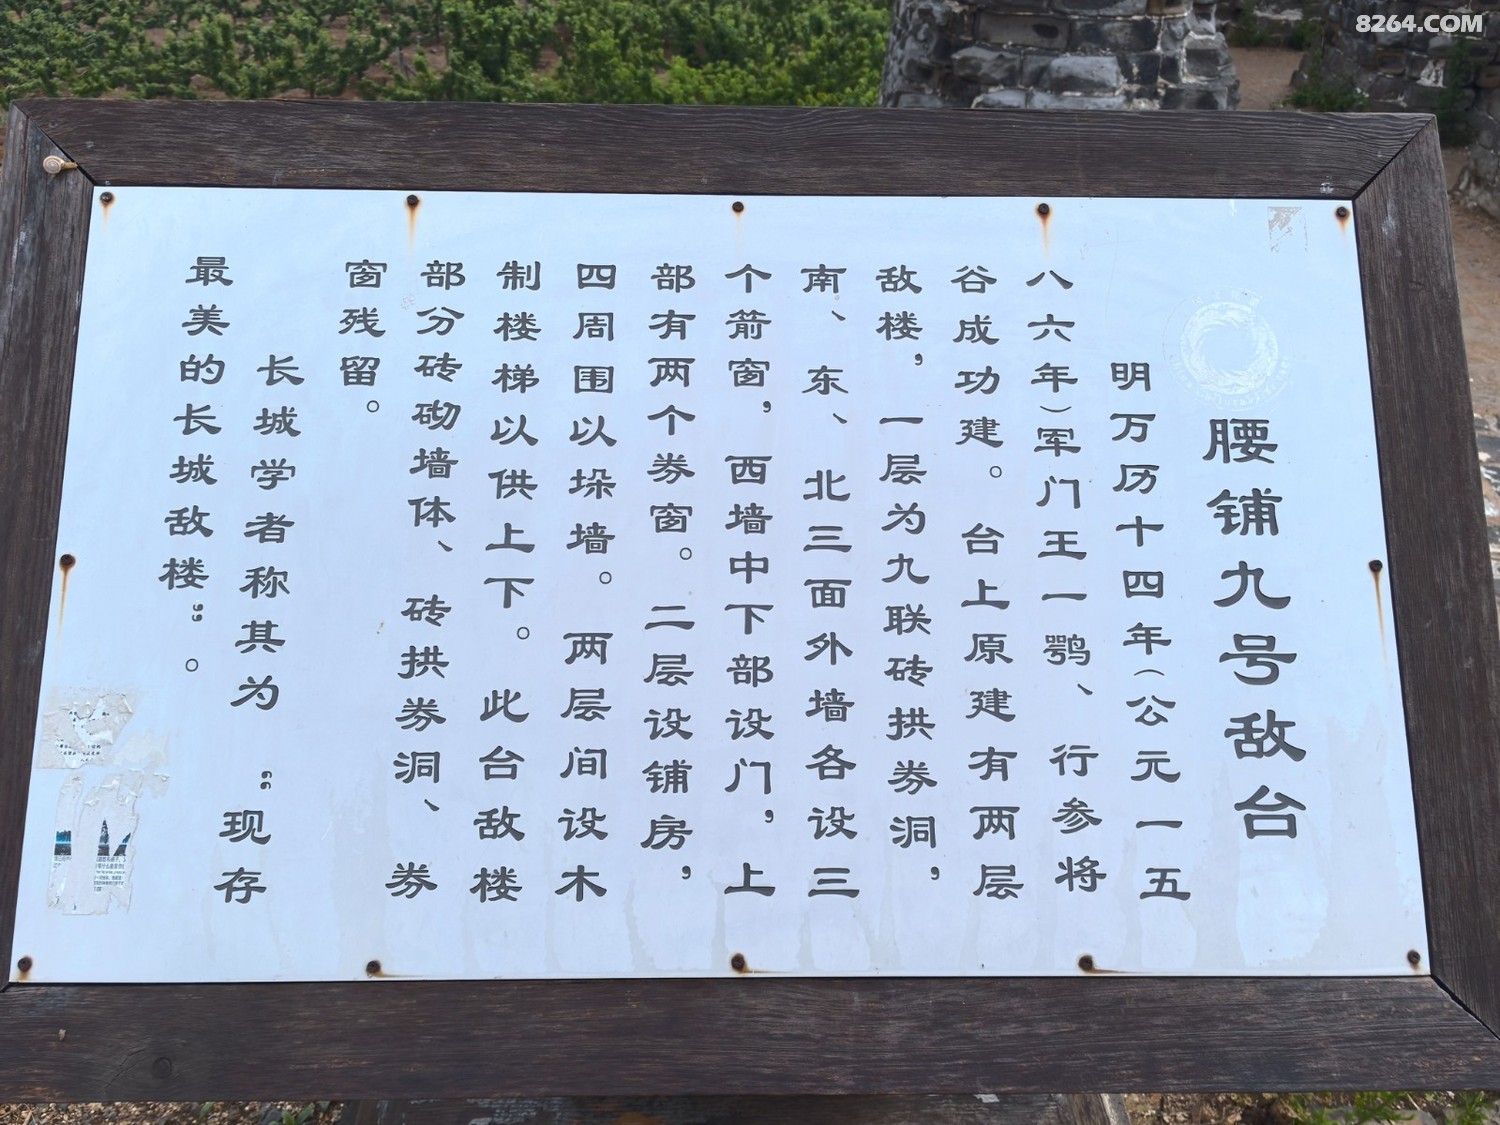 8264.COM
腰铺九号敌台
明万历十四年（公元一五
八六年）军门王一鹗、行参将
谷成功建。台上原建有两层
敌楼，一层为九联砖拱券洞，
南、东、北三面外墙各设三
个箭窗，西墙中下部设门，上
部有两个券窗。二层设铺房，
四周围以垛墙。两层间设木
制楼梯以供上下。此台敌楼
部分砖砌墙体、砖拱券洞、券
窗残留。
长城学者称其为“现存
最美的长城敌楼”。